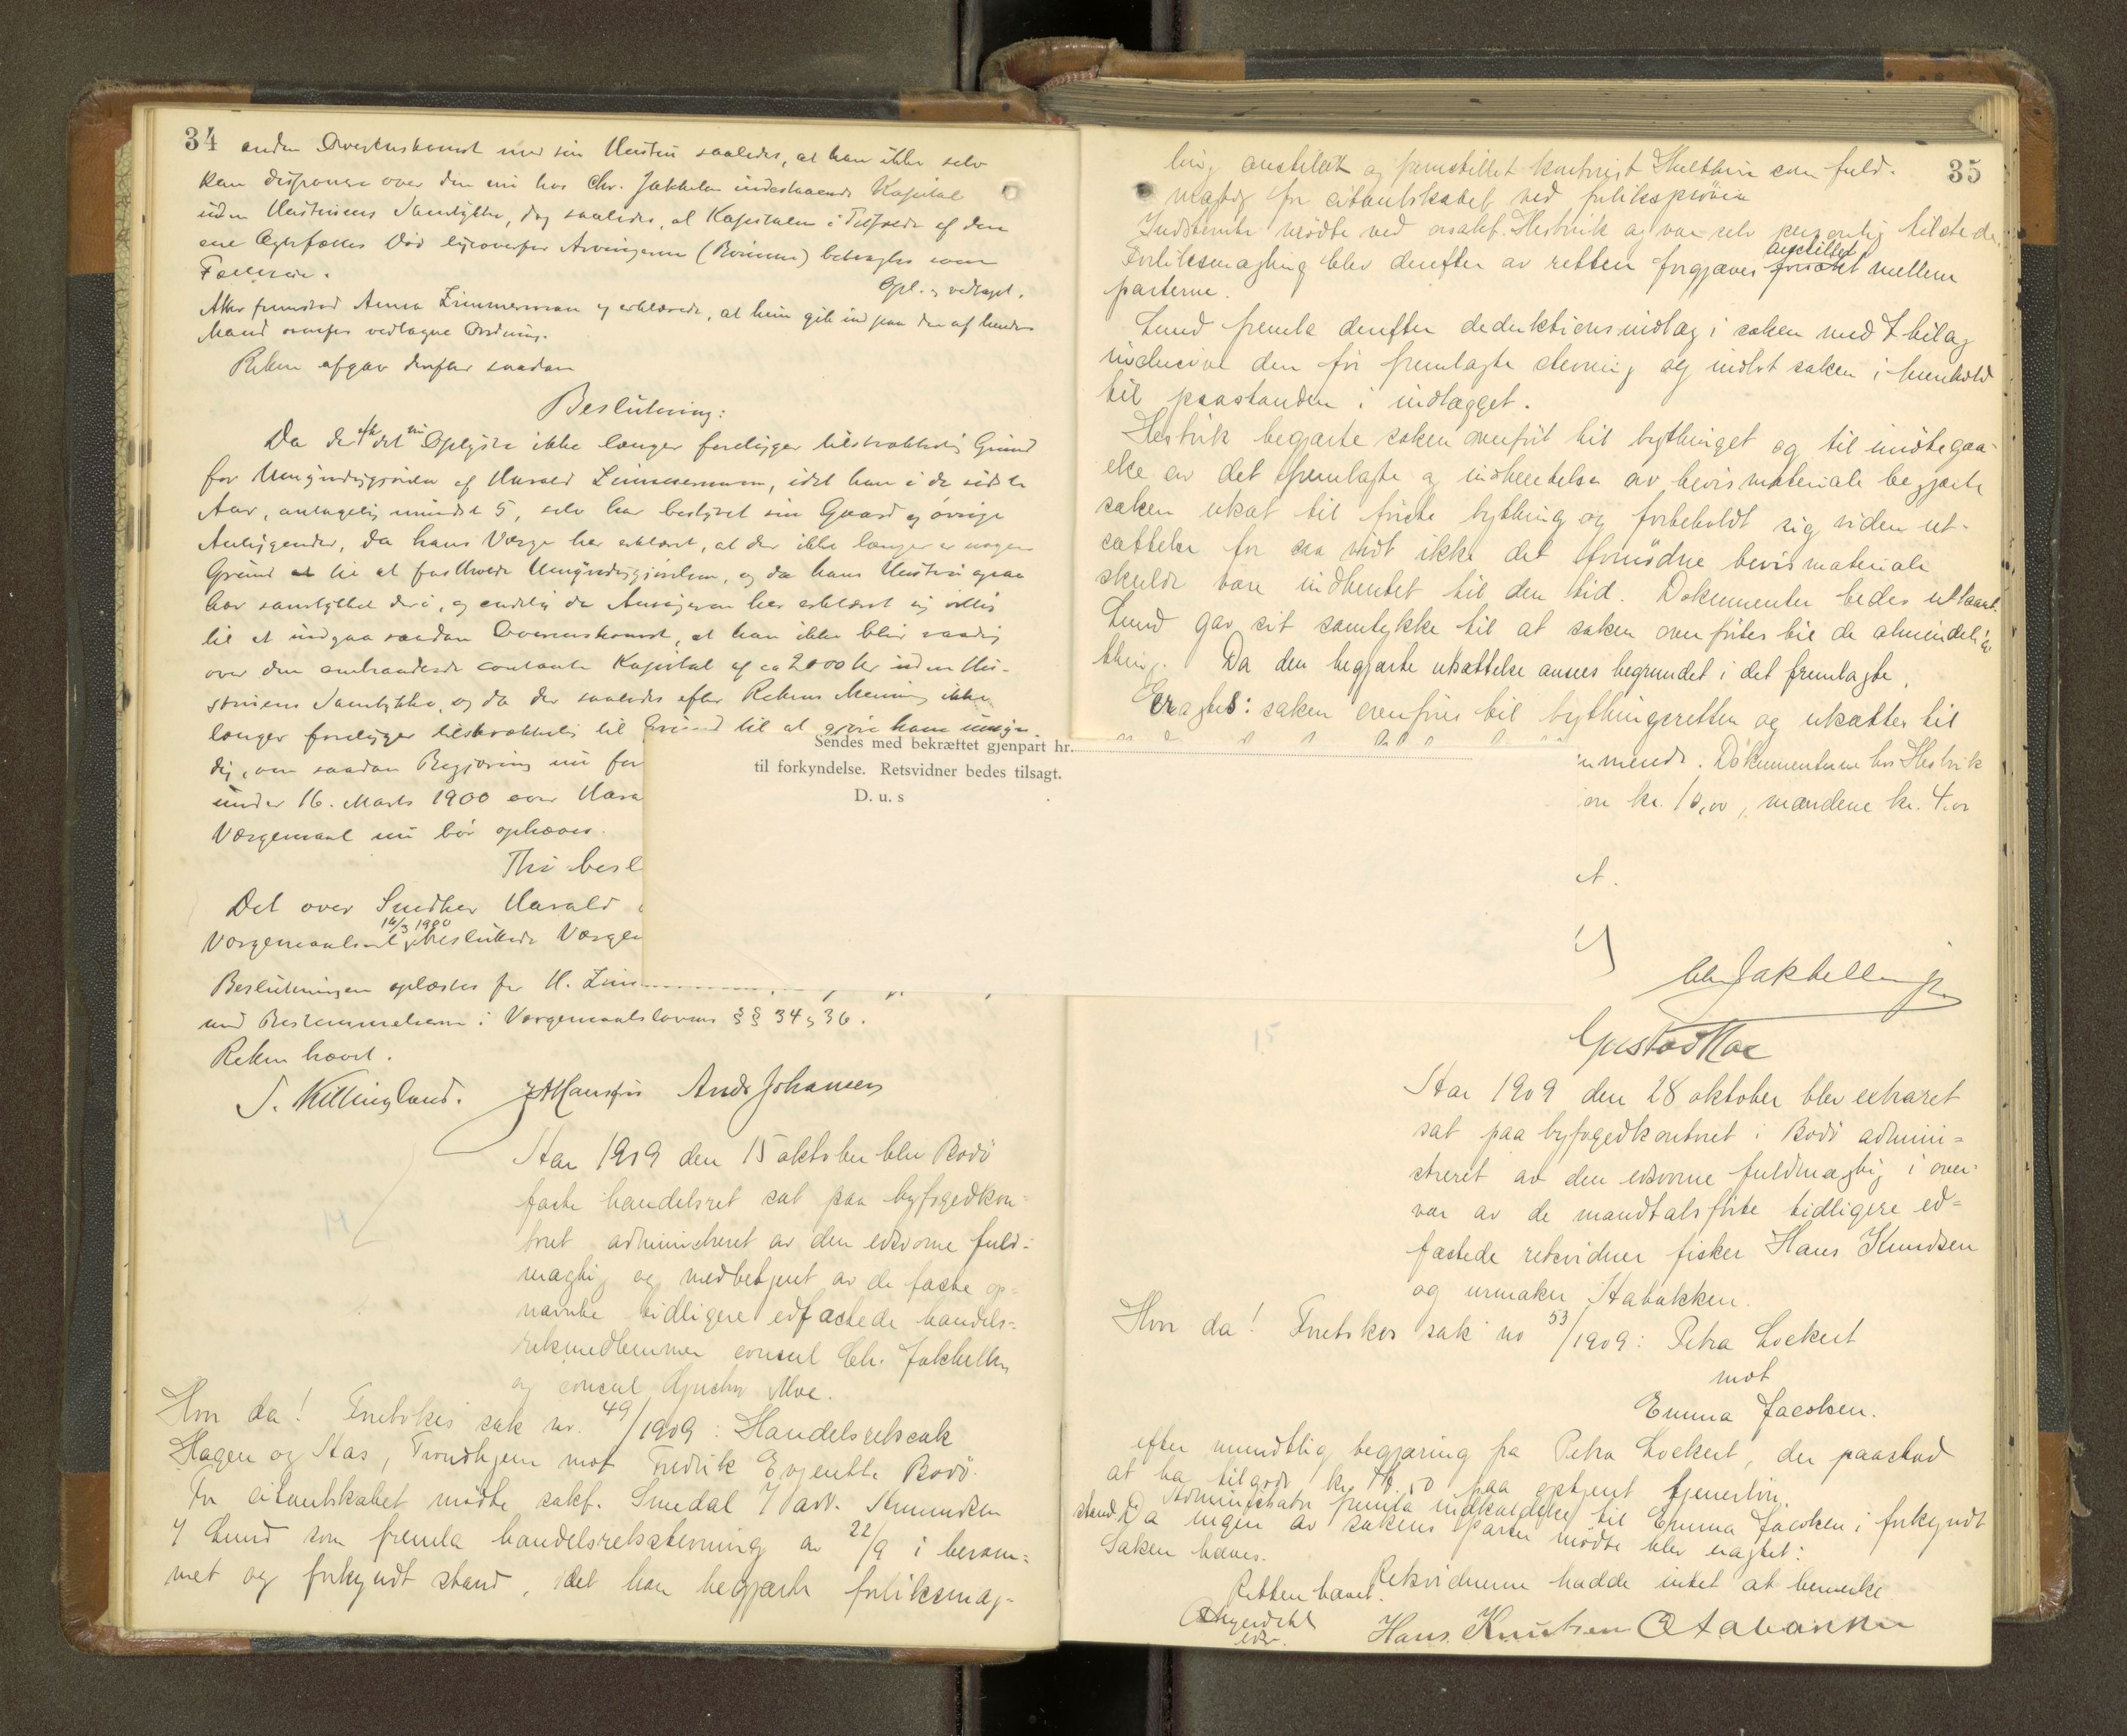 34
anden Overenskomst med sin Hustru saaledes, at han ikke selv
kan disponere over den nu hos Chr. Jakhelln indestaaende Kapital
uden Hustruens Samtykke, dog saaledes, at Kapitalen i Tilfælde af den
ene Ægtefælles Død ligeoverfor Arvingerne (Børnene) betragtes som
Fælleseie.
Opl. og vedtaget.
Atter fremstod Anna Zimmermann og erklærede, at hun gik ind paa den af hendes
Mand ovenfor vedtagne Ordning.
Retten afgav derefter saadan
Beslutning:
Da der efter det nu Oplyste ikke længer foreligger tilstrækkelig Grund
for Umyndiggjørelse af Harald Zimmermann, idet han i de sidste
Aar, antagelig mindst 5, selv har bestyret sin Gaard og øvrige
Anliggender, da hans Værge har erklæret, at der ikke længer er nogen
Grund til at fastholde Umyndiggjørelsen, og da hans Hustru ogsaa
har samtykket deri, og endelig da Andrageren har erklæret sig villig
til at indgaa saadan Overenskomst, at han ikke blir raadig
over den omhandlede contante Kapital af ca 2000 Kr uden Hu-
struens Samtykke, og da der saaledes efter Rettens Mening ikke
længer foreligger tilstrækkelig til Grund til at gjøre ham umyn-
dig, om saadan Begjæring nu for
under 16. Marts 1900 over Hara
Værgemaal nu bør ophæves.
Thi besl
Det over Snedker Harald
Værgemaalsret 16/3 1900 besluttede Værge
Beslutningen oplæstes for H. Zim
med Bestemmelserne i Værgemaalslovens §§ 34 og 36.
Retten hævet.
S. Killingland. Ands Johansen
Aar 1909 den 15 oktober blev Bodø
faste handelsret sat paa byfogedkon=
toret administreret av den edsvorne fuld=
mægtig og medbetjent av de faste op=
nævnte tidligere edfæstede handels=
retsmedlemmer consul Ch. Jakhelln
og consul Gustav Moe.
Hvor da! Foretokes sak nr. 49/1909: Handelsretssak
Hagen og Aas, Trondhjem mot Fredrik Evjenth Bodø.
For citantskabet mødte sakf. Smedal v/ adv. Amundsen
v/ Lund som fremla handelsretsstevning av 22/9 i beram=
met og forkyndt stand, idet han begjærte forliksmæg-
35
ling anstillet og fremstillet kontorist Hulthin som fuld-
mægtig for citantskabet ved forliksprøven
Indstevnte mødte ved orsakf. Hestvik og var selv personlig tilstede.
Forliksmægling blev derefter av retten forgjæves anstillet mellem
parterne.
Lund fremla derefter deduktionsindlæg i saken med 7 bilag
inclusive den før fremlagte stevning og indlot saken i henhold
til paastanden i indlægget.
Hestvik begjærte saken overført til bythinget og til imøtegaa-
else av det fremlagte og indhentelse av bevismateriale begjærte
saken utsat til første bything og forbeholdt sig viden ut-
sættelse for saa vidt ikke det fornødne bevismateriale
skulde være indhentet til den tid. Dokumenter bedes utlaant.
Lund gav sit samtykke til at saken overføres til de almindelige
thing. Da den begjærte utsættelse ansees begrundet i det fremlagte,
Eragtes: saken overføres til bythingsretten og utsættes til
Sendes med bekræftet gjenpart hr.
til forkyndelse. Retsvidner bedes tilsagt.
D. u. s
mende. Dokumenterne hos Hestvik
en kr. 10,00, mændene kr. 4.00
et.
Ch Jakhelln jr
Gustav Moe
Aar 1909 den 28 oktober blev extraret
sat paa byfogedkontoret i Bodø admini=
streret av den edsvorne fuldmægtig i over=
vær av de mandtalsførte tidligere ed=
fæstede retsvidner fisker Hans Knudsen
og urmaker Stabakken.
Hvor da! Foretokes sak no 53/1909: Petra Lockert
mot
Emma Jacobsen.
efter mundtlig begjæring fra Petra Lockert, der paastod
at ha tilgode kr. 50 paa optjent tjenerløn.
Administrator fremla indkaldelse til Emma Jacobsen i forkyndt
stand. Da ingen av sakens parter mødte blev eragtet:
Saken hæves.
Retsvidnerne hadde intet at bemerke.
Retten hævet.
edsv.
Hans Knutsen Stabakken